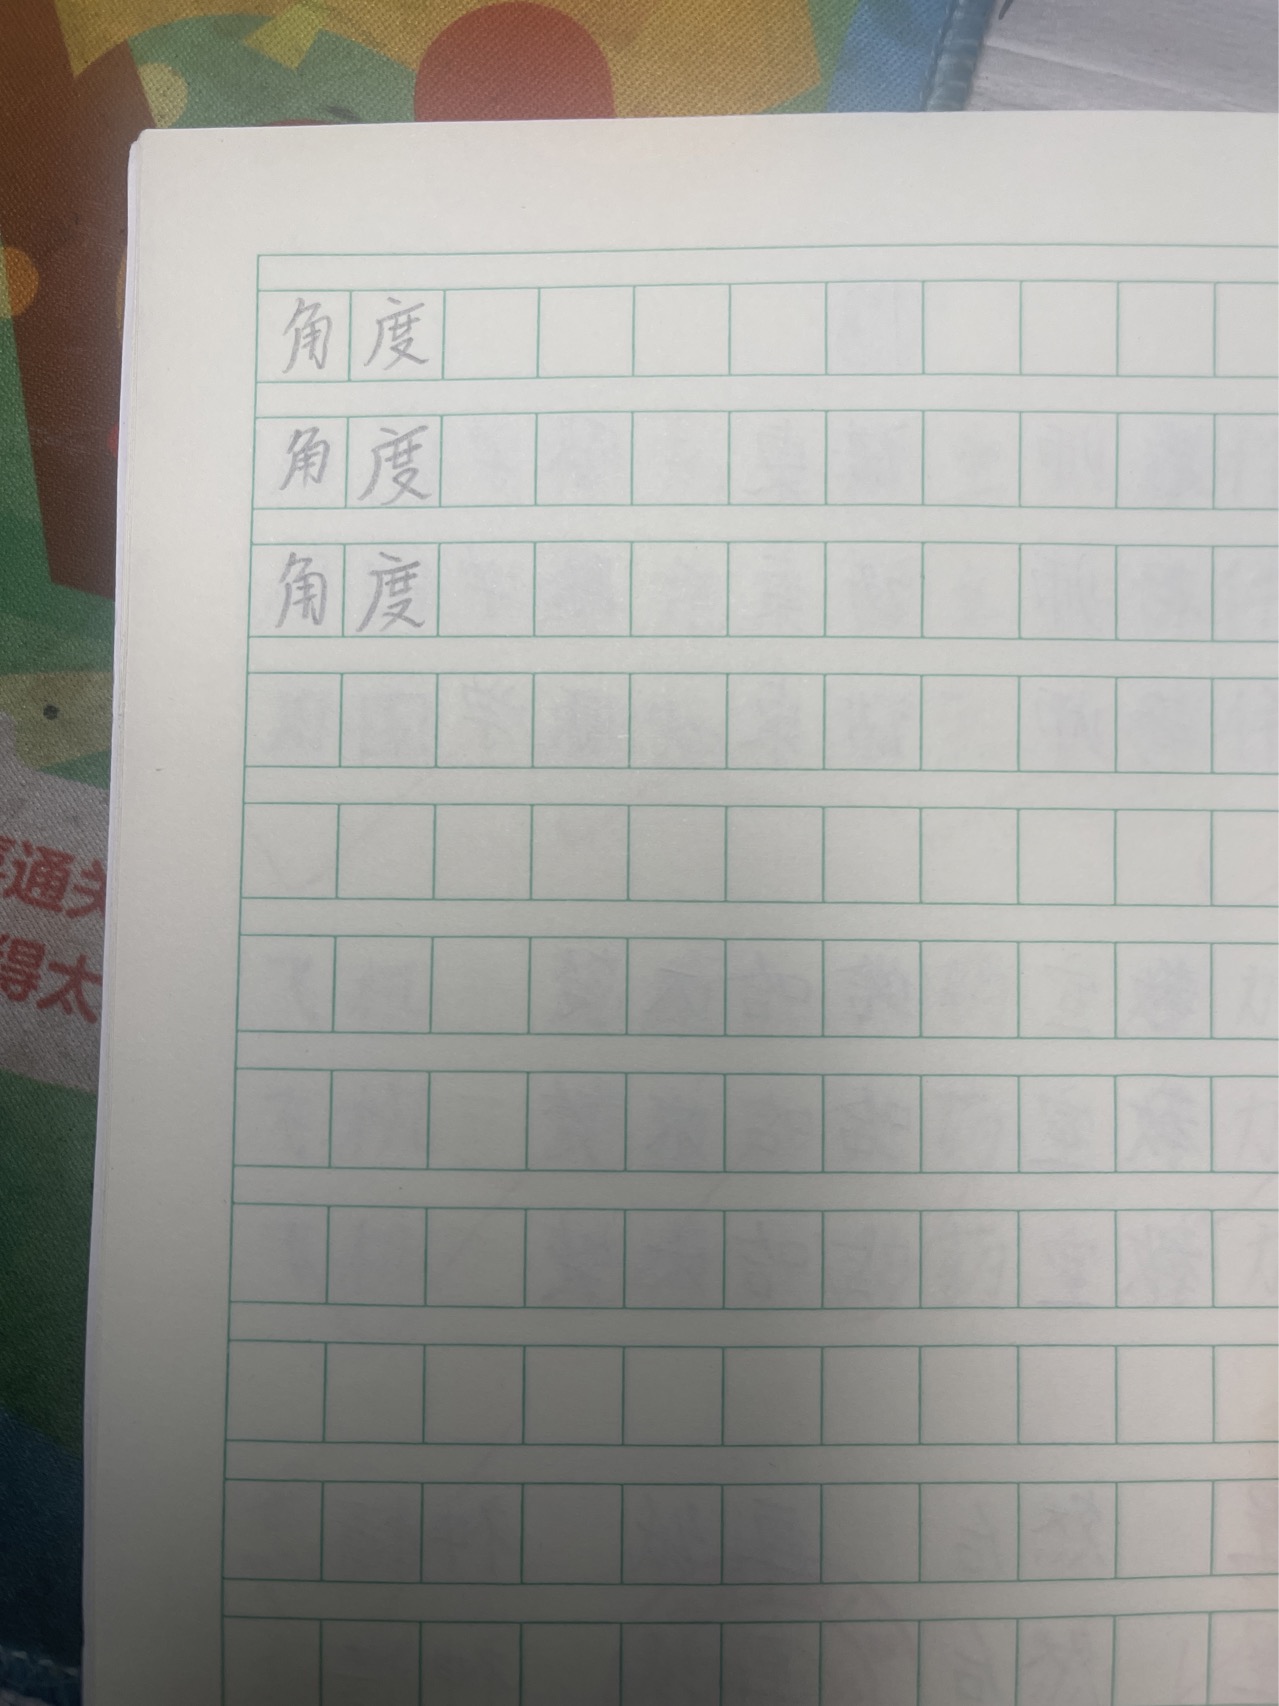 角度
角度
角度
通关
得太